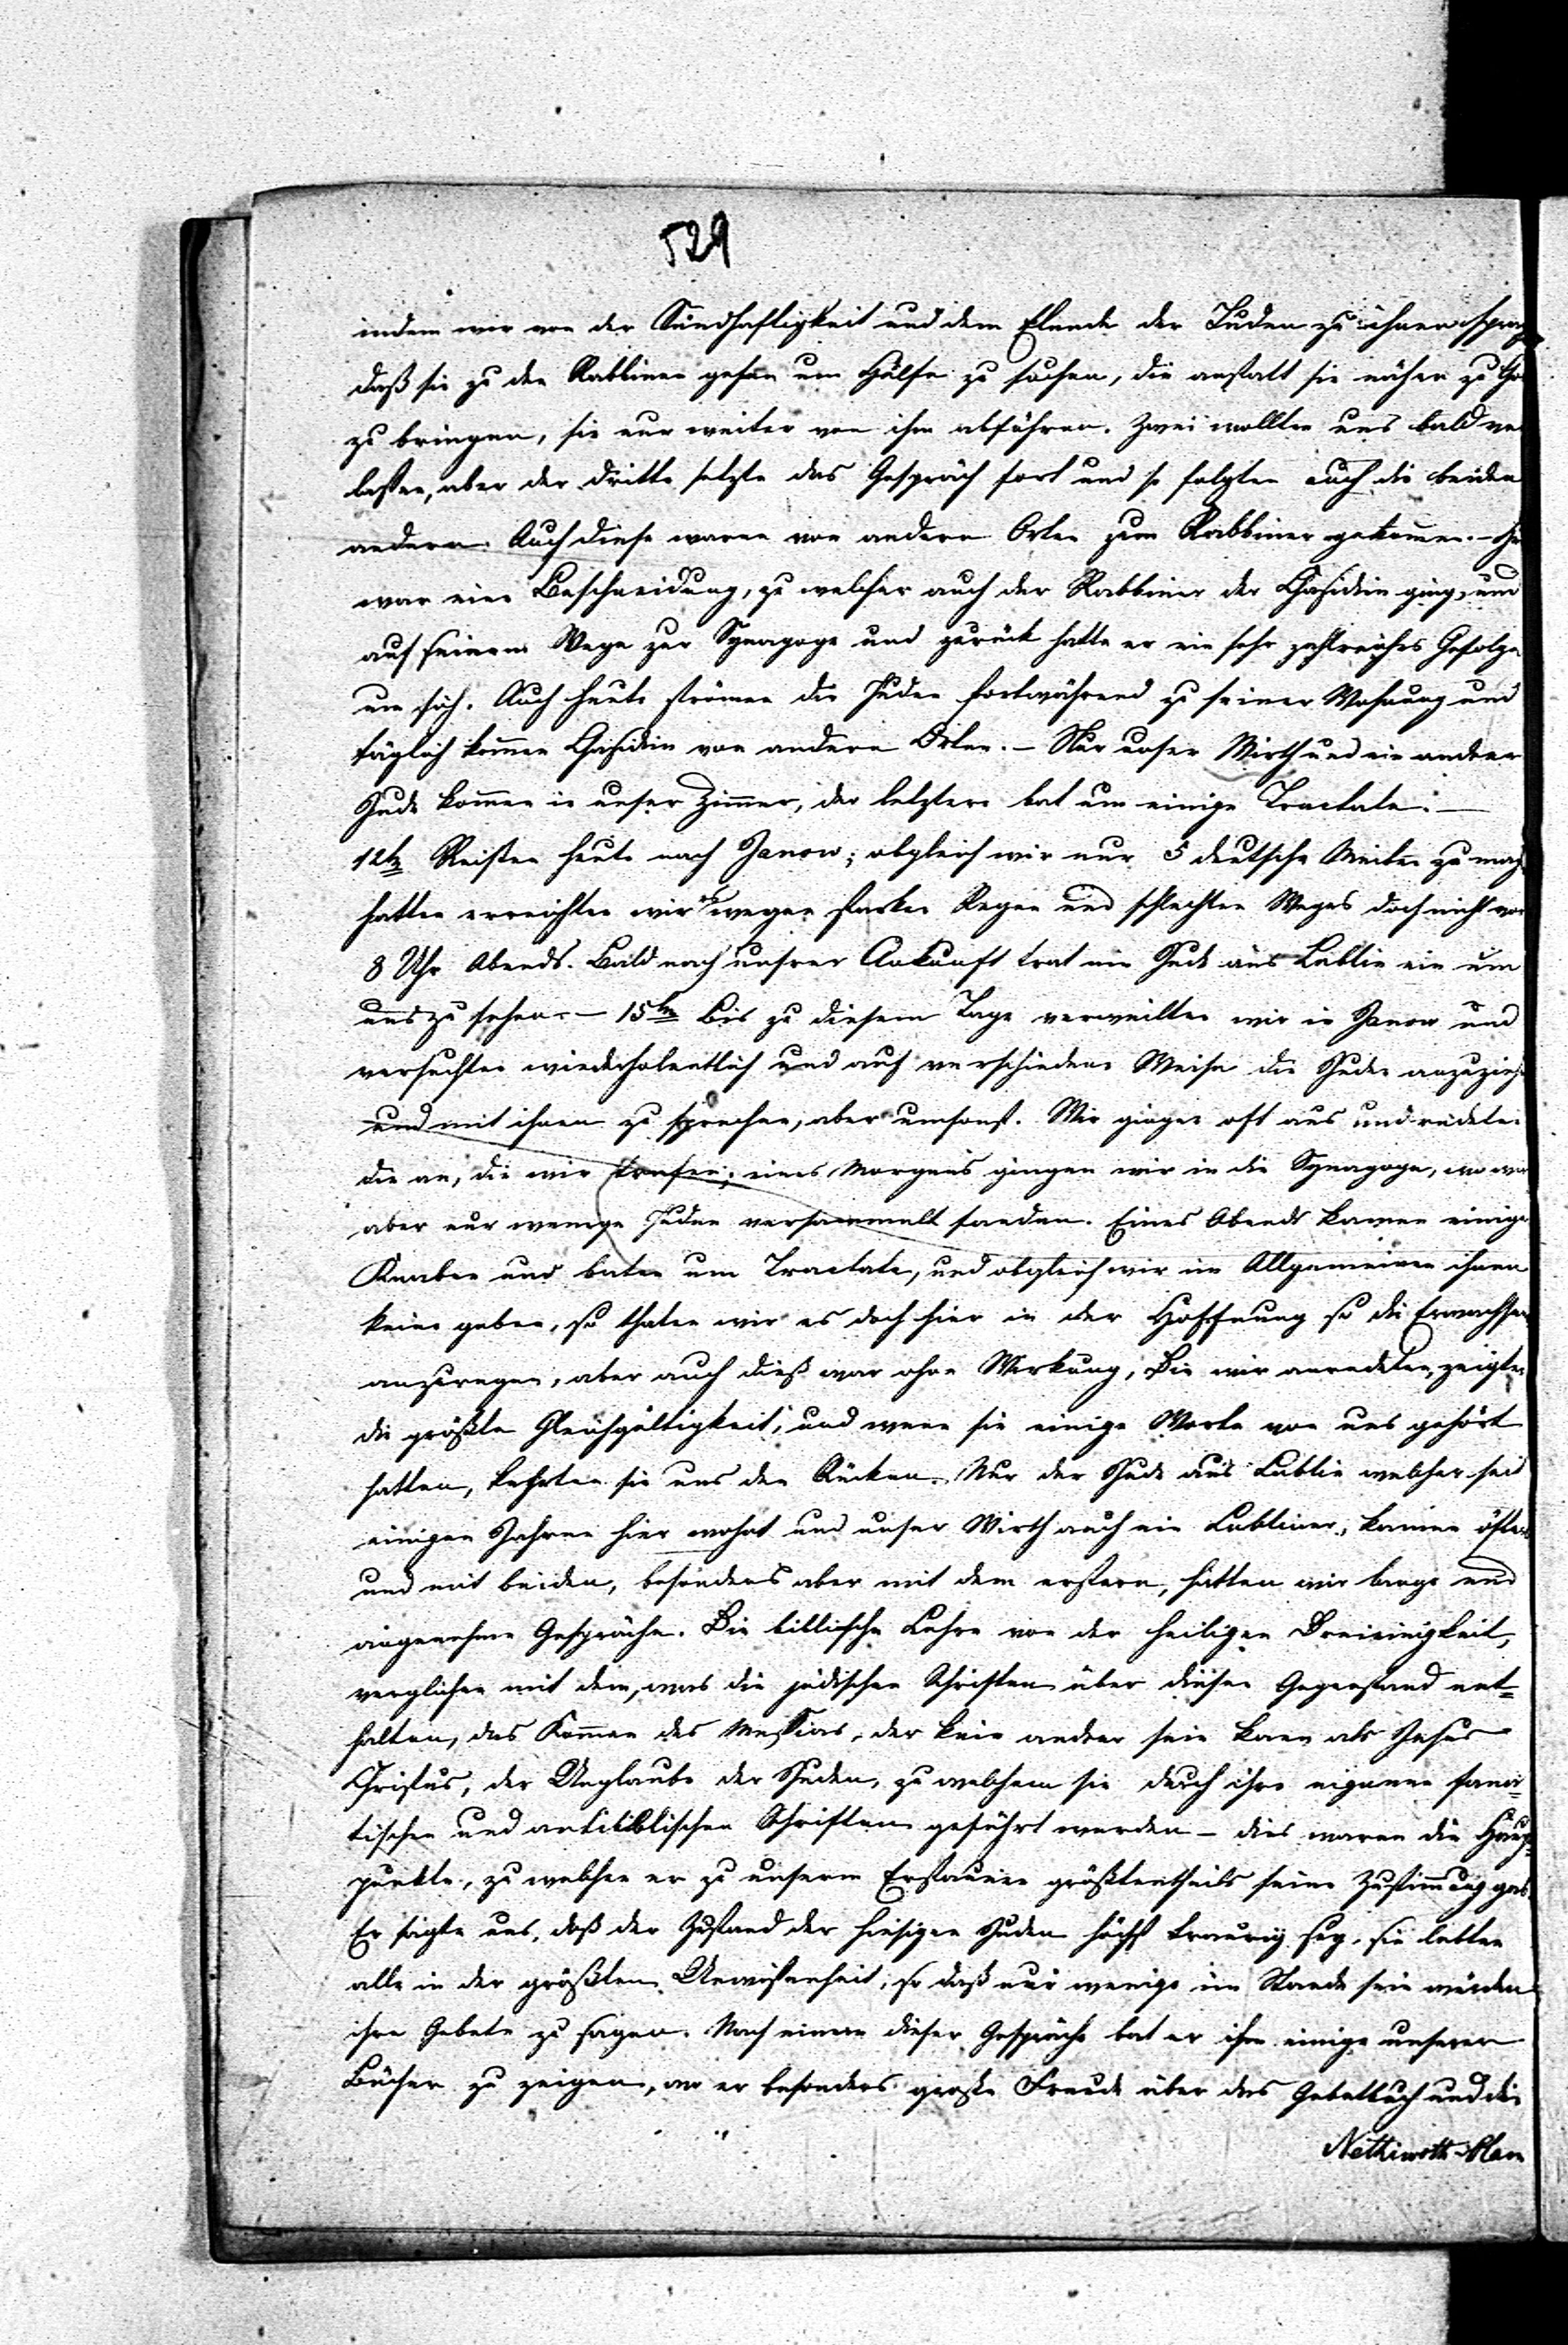 529
indem wir von der Sündhaftigkeit und dem Elende der Juden zu ihnen sprach
daß sie zu den Rabbinern gehen um Hülfe zu suchen, die anstatt sie näher zu Go
zu bringen, sie nur weiter von ihm abführen. Zwei wollten uns bald ver
lassen, aber der dritte setzte das Gespräch fort und so folgten auch die beiden
andern. Auch diese waren von andern Orten zum Rabbiner gekommen. –
war eine Beschneidung, zu welcher auch der Rabbiner der Chasidim ging, und
auf seinem Wege zur Synagoge und zurück hatte er ein sehr zahlreiches Gefolge
um sich. Auch heute strömen die Juden fortwährend zu seiner Wohnung und
täglich kommen Chasidim von andern Orten. – Nur unser Wirth und ein andrer
Jude kommen in unser Zimmer, der letztere bat um einige Tractate. –
12ten Reisten heute nach Janow; obgleich wir nur 5 deutsche Meilen zu mach
hatten erreichten wir es wegen starken Regen und schlechten Weges doch nicht vor
8 Uhr Abends. Bald nach unsrer Ankunft trat ein Jude aus Lublin ein um
uns zu sehen. – 15ten Bis zu diesem Tage verweilten wir in Janow und
versuchten wiederholentlich und auf verschiedene Weise die Juden anzuzieh
und mit ihnen zu sprechen, aber umsonst. Wir gingen oft aus und redeten
die an, die wir trafen; eines Morgens gingen wir in die Synagoge, wo wir
aber nur wenige Juden versammelt fanden. Eines Abends kamen einige
Knaben und baten um Tractate, und obgleich wir im Allgemeinen ihnen
keine geben, so thaten wir es doch hier in der Hoffnung so die Erwachsen
anzuregen, aber auch dieß war ohne Wirkung; Die wir anredeten, zeigten
die größte Gleichgültigkeit, und wenn sie einige Worte von uns gehört
hatten, kehrten sie uns den Rücken. Nur der Jude aus Lublin welcher seit
einigen Jahren hier wohnt und unser Wirth auch ein Lubliner, kamen öfters
und mit beiden, besonders aber mit dem erstern, hatten wir lange und
angenehme Gespräche. Die biblische Lehre von der heiligen Dreieinigkeit,
verglichen mit dem, was die jüdischen Schriften über diesen Gegenstand ent=
halten, das Kommen des Messias, der kein andrer sein kann als Jesus
Christus, der Unglaube der Juden, zu welchem sie durch ihre eigenen fana=
tischen und antibiblischen Schriften geführt werden – dies waren die Haup
punkte, zu welchen er zu unserm Erstaunen größtentheils seine Zustimmung gab.
Er sagte uns, daß der Zustand der hiesigen Juden höchst traurig sey, sie lebten
alle in der größten Unwissenheit, so daß nur wenige im Stande sein würden
ihre Gebete zu sagen. Nach einem dieser Gespräche bat er ihm einige unserer
Bücher zu zeigen, wo er besonders große Freude über das Gebetbuch und die
Nethiwoth Olam